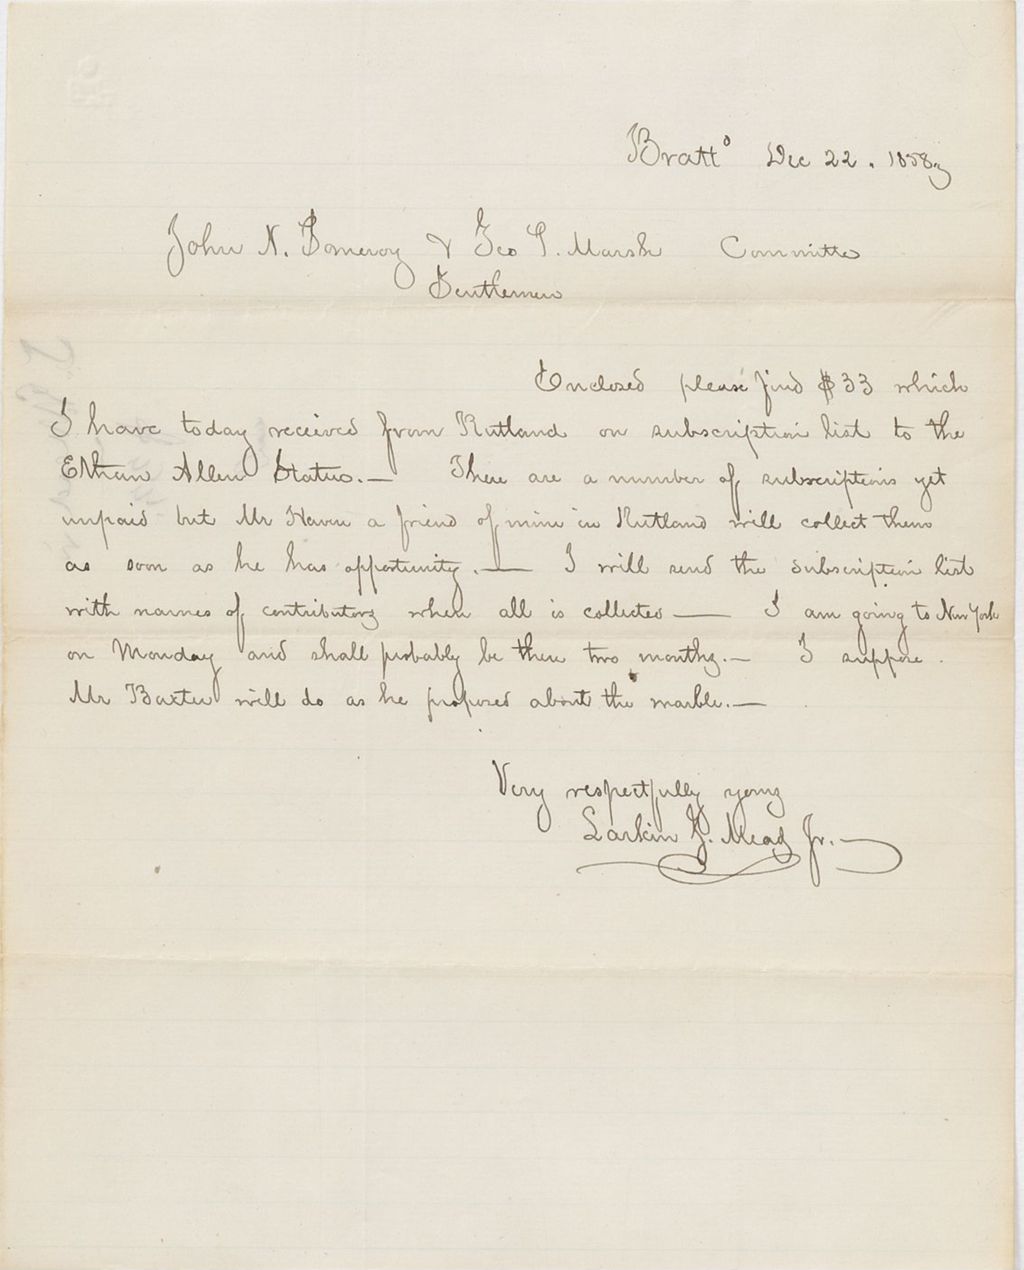 Bratto Dec 22. 1858
John N. Pomeroy & Geo P. Marsh Committee
Gentlemen
Enclosed please find $33 which
I have today received from Rutland on subscription list to the
Ethan Allen Statue. — There are a number of subscriptions yet
unpaid but Mr Haven a friend of mine in Rutland will collect them
as soon as he has opportunity. — I will send the subscription list
with names of contributors when all is collected — I am going to New York
on Monday and shall probably be there two months. — I suppose
Mr Baxter will do as he proposed about the marble. —
Very respectfully yours
Larkin G. Mead Jr. —